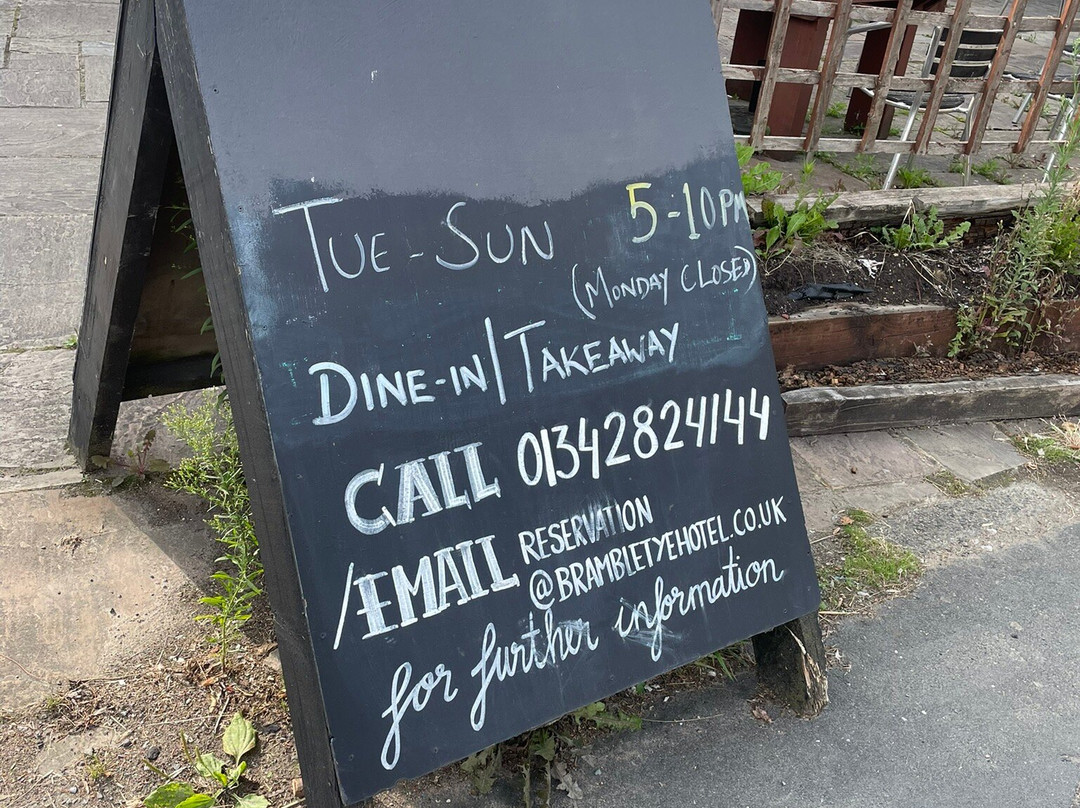 TUE-SUN 5-10PM
(MONDAY CLOSED)
DINE-IN/TAKEAWAY
CALL 01342824144
/EMAIL RESERVATION
@BRAMBLETYEHOTEL.CO.UK
for further information